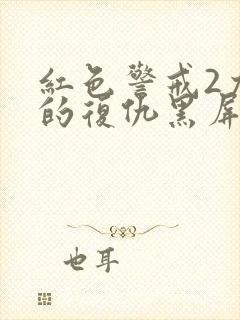 紅色警戒2尤
的復仇黑屏
也耳